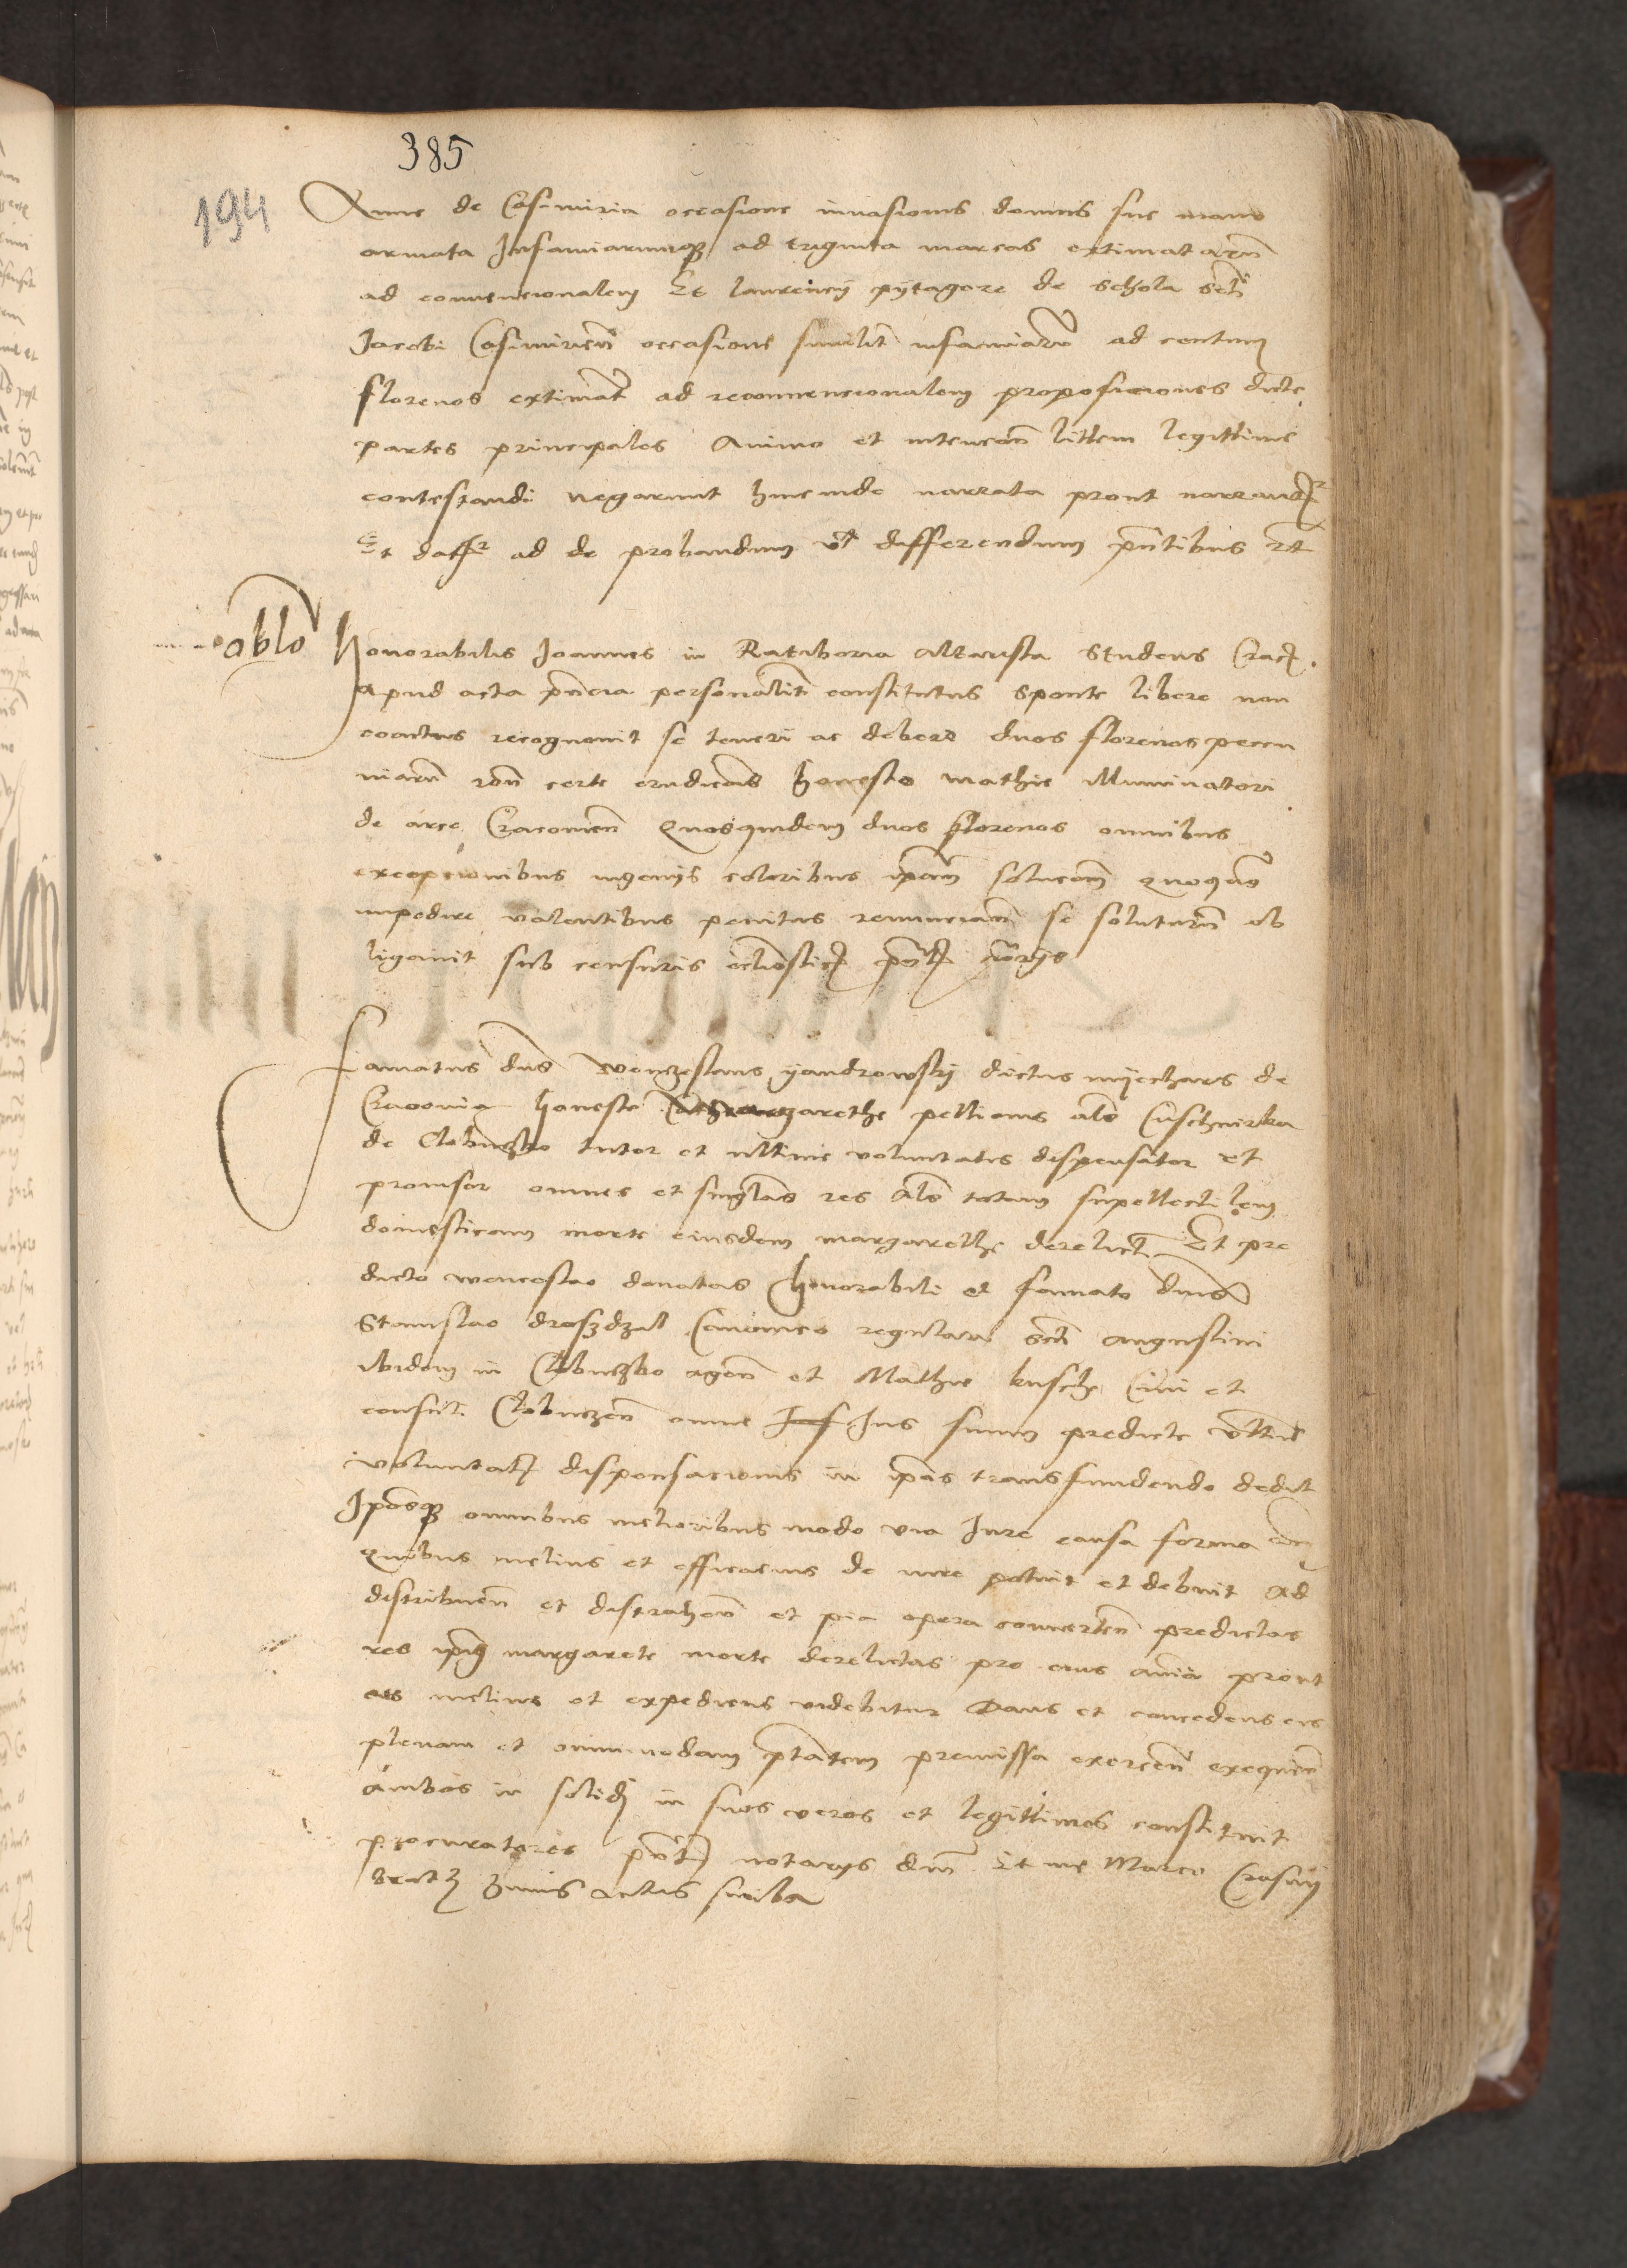 385
194
Anne de Casimiria occasione invasionis domus sue manu
armata Infamiarumque ad triginta marcas extimatarum
ad convencionalem Et laurencij pytagore de schola scti
Jacobi Casimirien occasione similit infamiaru ad centum
florenos extimat ad reconvencionalem proposiciones dicte
partes principales Animo et intencon littem legittime
contestandi negarunt hincinde narrata prout narrantr
Et datr ad de probandum vl differendum pntibus rt
oblo
Honorabilis Joannes in Rathiboria altarista Studens Crac.
Apud acta pncia personalit constitutus sponte libere non
coactus recognovit se teneri ac debere duos florenos peccu
niaru ron certe erudicois honesto mathie illuminatori
de arce Cracovien Quosquidem duos florenos omnibus
excepcionibus ingenijs coloribus ipam solucom quoquo
impedire valentibus penitus renunciam se soluturu ob
ligavit sub censuris ecclesticis pntt
famatus dns venczeslaus yandrowskij dictus myechars de
Cracovia honeste margarethe pellionis als Cuschnirka
de Clobuczko tutor et ultime voluntatis dispensator et
provisor omnes et singlas res als totam supellectilem
domesticam morte eiusdem margarethe derelict Et pre
dicto venceslao donatas honorabili et famato dnis
Stanislao droszdzal Canonico regulari scti augustini
ibidem in Clobuczko agen et Mathie kusch Civi et
consul Clobuczen omne Jus suum predicte ultime
voluntat dispensacionis in ipos transfundendo dedit
Iposque omnibus melioribus modo via Jure causa forma
quibus melius et efficacius de iure potuit et debuit ad
distribuen et distrahen et pia opera converten predictas
res ipius margarete morte derelictas pro eius aniā prout
eis melius et expediens videbitur Dans et concedens eis
plenam et omnimodam ptatem premissa exercen exequen
ambos in solid in suos veros et legittimos constituit
procuratores pntt notarijs dm Et me Marco
actus scriba